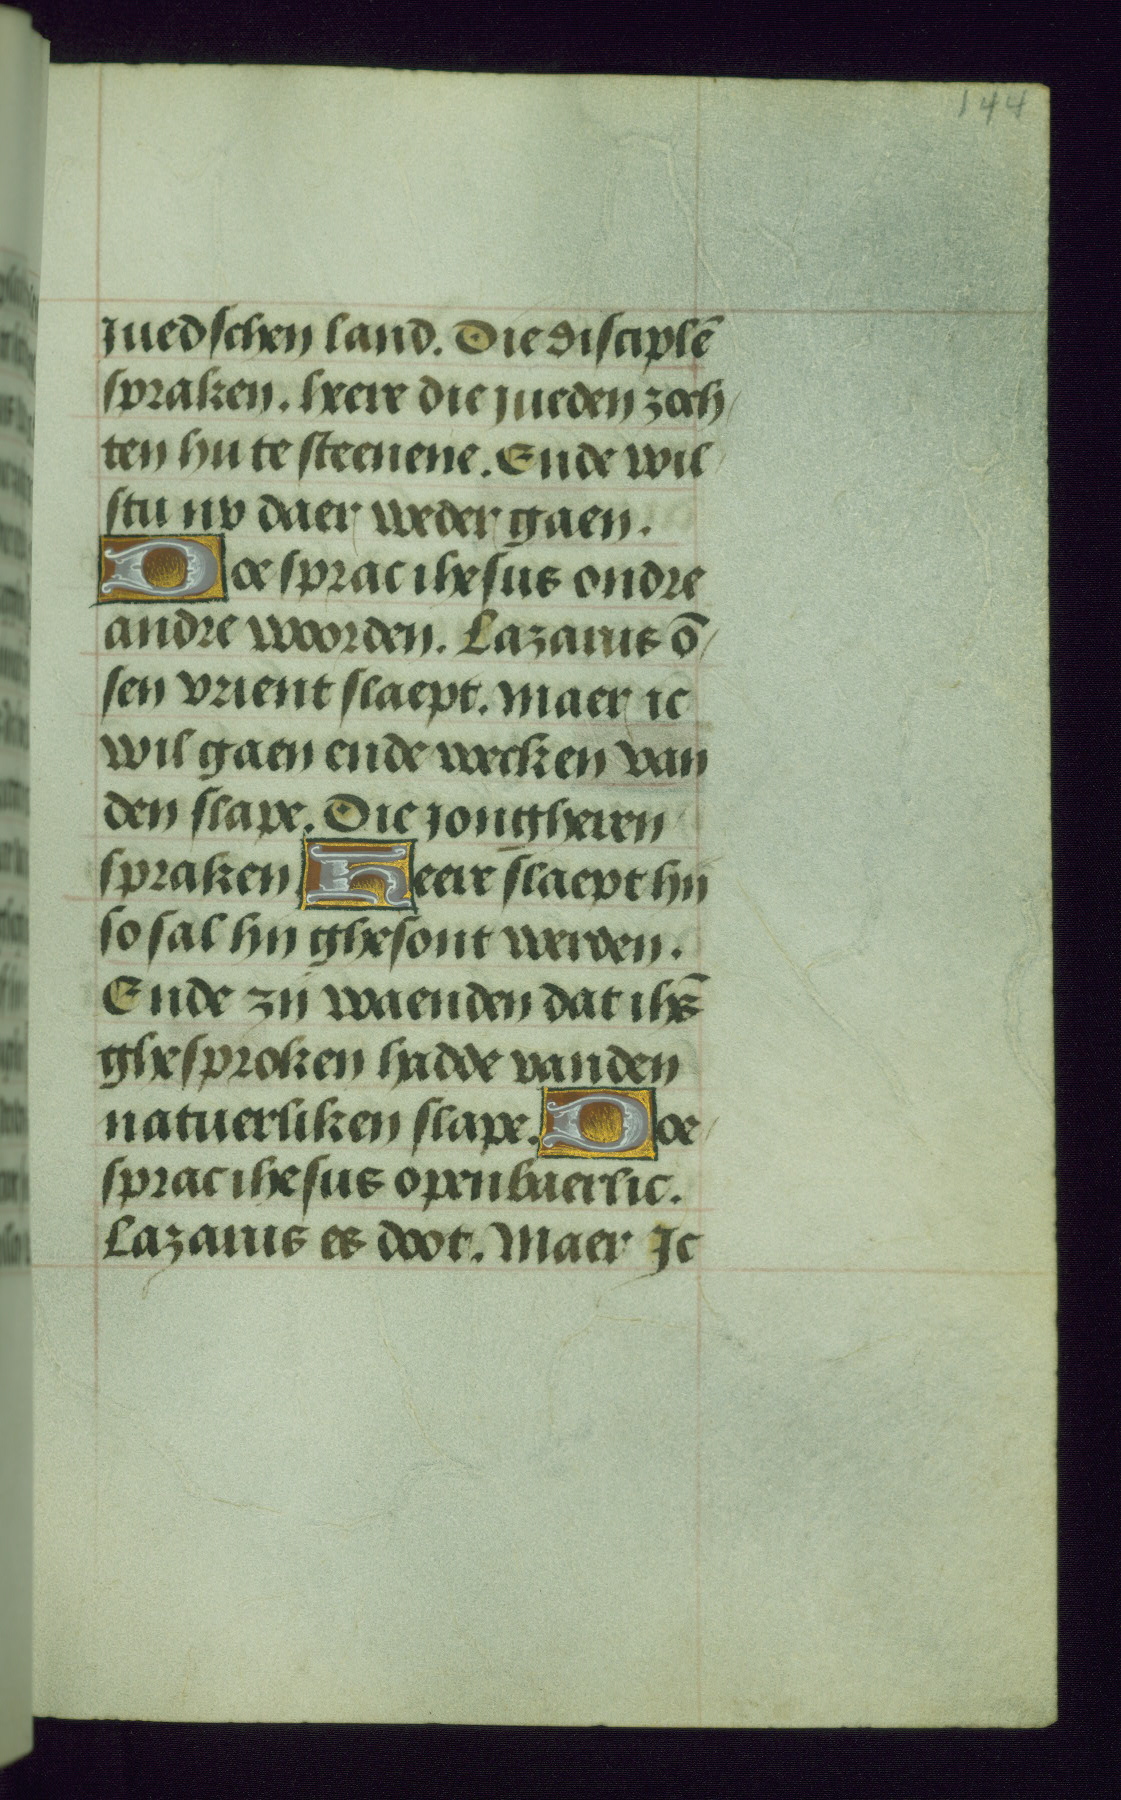 144
juedschen land. Die disciplē
spraken. heere die jueden zoch/
ten hu te steenene. Ende wil/
stu nv daer weder gaen.
Doe sprac ihesus ondre
andre woorden. Lazarus ō/
sen vrient slaept. Maer ic
wil gaen ende wecken van
den slape. Die jongheren
spraken. Heere slaept hij
so sal hij ghesont werden.
Ende zij waenden dat ihs̄
ghesproken hadde vanden
natuerliken slape. Doe/
sprac ihesus openbaerlic.
Lazarus es doot. Maer Ic